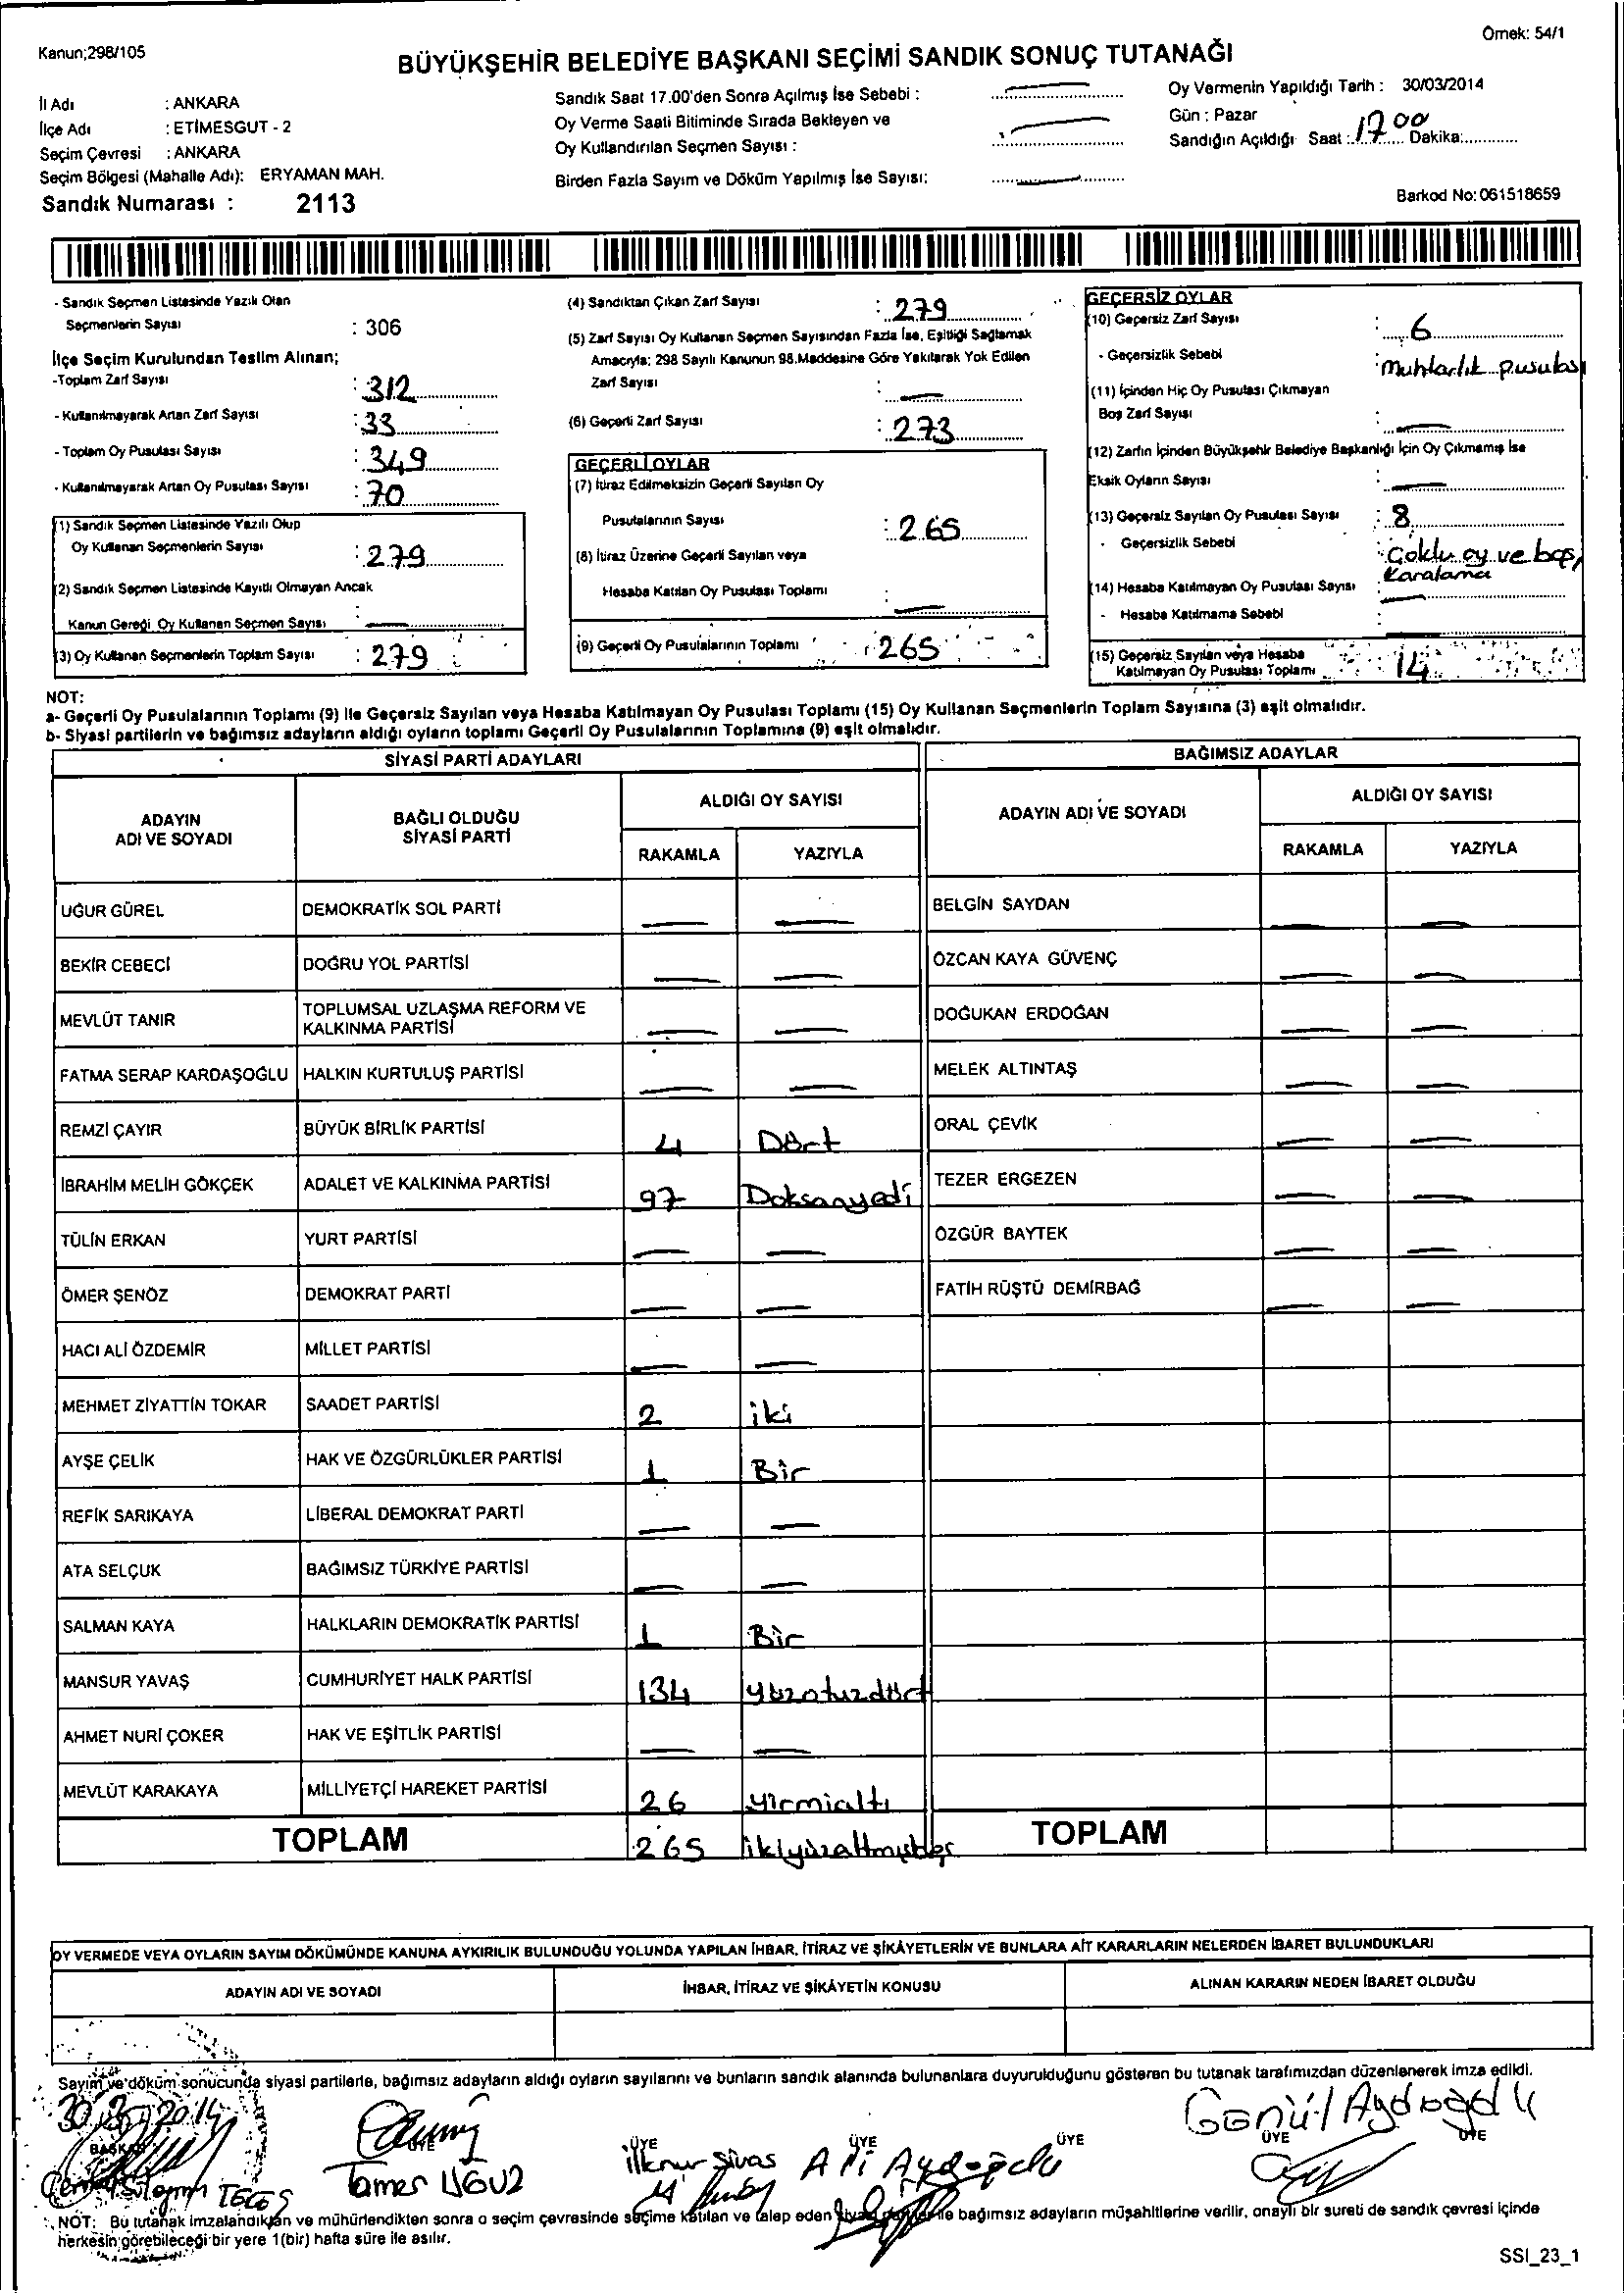 Kanun;298/105
Örnek: 54/1
BÜYÜKŞEHİR BELEDİYE BAŞKANI SEÇİMİ SANDIK SONUÇ TUTANAĞI
İl Adı : ANKARA
İlçe Adı : ETİMESGUT - 2
Seçim Çevresi : ANKARA
Seçim Bölgesi (Mahalle Adı): ERYAMAN MAH.
Sandık Numarası : 2113
Sandık Saat 17.00'den Sonra Açılmış İse Sebebi :
Oy Verme Saati Bitiminde Sırada Bekleyen ve
Oy Kullandırılan Seçmen Sayısı :
Birden Fazla Sayım ve Döküm Yapılmış İse Sayısı:
Oy Vermenin Yapıldığı Tarih : 30/03/2014
Gün : Pazar
Sandığın Açıldığı Saat : 17 00 Dakika:
Barkod No: 061518659
- Sandık Seçmen Listesinde Yazılı Olan
Seçmenlerin Sayısı : 306
İlçe Seçim Kurulundan Teslim Alınan;
-Toplam Zarf Sayısı : 312
- Kullanılmayarak Artan Zarf Sayısı : 33
- Toplam Oy Pusulası Sayısı : 349
- Kullanılmayarak Artan Oy Pusulası Sayısı : 70
(1) Sandık Seçmen Listesinde Yazılı Olup
Oy Kullanan Seçmenlerin Sayısı : 279
(2) Sandık Seçmen Listesinde Kayıtlı Olmayan Ancak
Kanun Gereği Oy Kullanan Seçmen Sayısı : —
(3) Oy Kullanan Seçmenlerin Toplam Sayısı : 279
(4) Sandıktan Çıkan Zarf Sayısı : 279
(5) Zarf Sayısı Oy Kullanan Seçmen Sayısından Fazla İse, Eşitliği Sağlamak
Amacıyla; 298 Sayılı Kanunun 98.Maddesine Göre Yakılarak Yok Edilen
Zarf Sayısı : —
(6) Geçerli Zarf Sayısı : 273
GEÇERLİ OYLAR
(7) İtiraz Edilmeksizin Geçerli Sayılan Oy
Pusulalarının Sayısı : 265
(8) İtiraz Üzerine Geçerli Sayılan veya
Hesaba Katılan Oy Pusulası Toplamı : —
(9) Geçerli Oy Pusulalarının Toplamı : 265
GEÇERSİZ OYLAR
(10) Geçersiz Zarf Sayısı : 6
- Geçersizlik Sebebi : Muhtarlık pusulası
(11) İçinden Hiç Oy Pusulası Çıkmayan
Boş Zarf Sayısı : —
(12) Zarfın İçinden Büyükşehir Belediye Başkanlığı İçin Oy Çıkmamış İse
Eksik Oyların Sayısı : —
(13) Geçersiz Sayılan Oy Pusulası Sayısı : 8
- Geçersizlik Sebebi : Çoklu oy ve boş,
Karalama
(14) Hesaba Katılmayan Oy Pusulası Sayısı : —
- Hesaba Katılmama Sebebi : —
(15) Geçersiz Sayılan veya Hesaba
Katılmayan Oy Pusulası Toplamı : 14
NOT:
a- Geçerli Oy Pusulalarının Toplamı (9) ile Geçersiz Sayılan veya Hesaba Katılmayan Oy Pusulası Toplamı (15) Oy Kullanan Seçmenlerin Toplam Sayısına (3) eşit olmalıdır.
b- Siyasi partilerin ve bağımsız adayların aldığı oyların toplamı Geçerli Oy Pusulalarının Toplamına (9) eşit olmalıdır.
SİYASİ PARTİ ADAYLARI
BAĞIMSIZ ADAYLAR
ADAYIN
ADI VE SOYADI
BAĞLI OLDUĞU
SİYASİ PARTİ
ALDIĞI OY SAYISI
RAKAMLA YAZIYLA
ADAYIN ADI VE SOYADI
ALDIĞI OY SAYISI
RAKAMLA YAZIYLA
UĞUR GÜREL DEMOKRATİK SOL PARTİ — — BELGİN SAYDAN — —
BEKİR CEBECİ DOĞRU YOL PARTİSİ — — ÖZCAN KAYA GÜVENÇ — —
MEVLÜT TANIR TOPLUMSAL UZLAŞMA REFORM VE
KALKINMA PARTİSİ — — DOĞUKAN ERDOĞAN — —
FATMA SERAP KARDAŞOĞLU HALKIN KURTULUŞ PARTİSİ — — MELEK ALTINTAŞ — —
REMZİ ÇAYIR BÜYÜK BİRLİK PARTİSİ 4 Dört ORAL ÇEVİK — —
İBRAHİM MELİH GÖKÇEK ADALET VE KALKINMA PARTİSİ 97 Doksanyedi TEZER ERGEZEN — —
TÜLİN ERKAN YURT PARTİSİ — — ÖZGÜR BAYTEK — —
ÖMER ŞENÖZ DEMOKRAT PARTİ — — FATİH RÜŞTÜ DEMİRBAĞ — —
HACI ALİ ÖZDEMİR MİLLET PARTİSİ — —
MEHMET ZİYATTİN TOKAR SAADET PARTİSİ 2 iki
AYŞE ÇELİK HAK VE ÖZGÜRLÜKLER PARTİSİ 1 Bir
REFİK SARIKAYA LİBERAL DEMOKRAT PARTİ — —
ATA SELÇUK BAĞIMSIZ TÜRKİYE PARTİSİ — —
SALMAN KAYA HALKLARIN DEMOKRATİK PARTİSİ 1 Bir
MANSUR YAVAŞ CUMHURİYET HALK PARTİSİ 134 yüzotuzdört
AHMET NURİ ÇOKER HAK VE EŞİTLİK PARTİSİ — —
MEVLÜT KARAKAYA MİLLİYETÇİ HAREKET PARTİSİ 26 yirmialtı
TOPLAM 265 ikiyüzaltmışbeş TOPLAM
OY VERMEDE VEYA OYLARIN SAYIM DÖKÜMÜNDE KANUNA AYKIRILIK BULUNDUĞU YOLUNDA YAPILAN İHBAR, İTİRAZ VE ŞİKÂYETLERİN VE BUNLARA AİT KARARLARIN NELERDEN İBARET BULUNDUKLARI
ADAYIN ADI VE SOYADI İHBAR, İTİRAZ VE ŞİKÂYETİN KONUSU ALINAN KARARIN NEDEN İBARET OLDUĞU
Sayım ve döküm sonucunda siyasi partilerle, bağımsız adayların aldığı oyların sayılarını ve bunların sandık alanında bulunanlara duyurulduğunu gösteren bu tutanak tarafımızdan düzenlenerek imza edildi.
30.3.2014
Gönül Aydoğdu
BAŞKAN ÜYE ÜYE ÜYE ÜYE ÜYE ÜYE
Tamer UĞUZ İlknur Sivas Ali Aydoğdu
NOT: Bu tutanak imzalandıktan ve mühürlendikten sonra o seçim çevresinde seçime katılan ve talep eden siyasi partiler ile bağımsız adayların müşahitlerine verilir, onaylı bir sureti de sandık çevresi içinde
herkesin görebileceği bir yere 1(bir) hafta süre ile asılır.
SSI_23_1